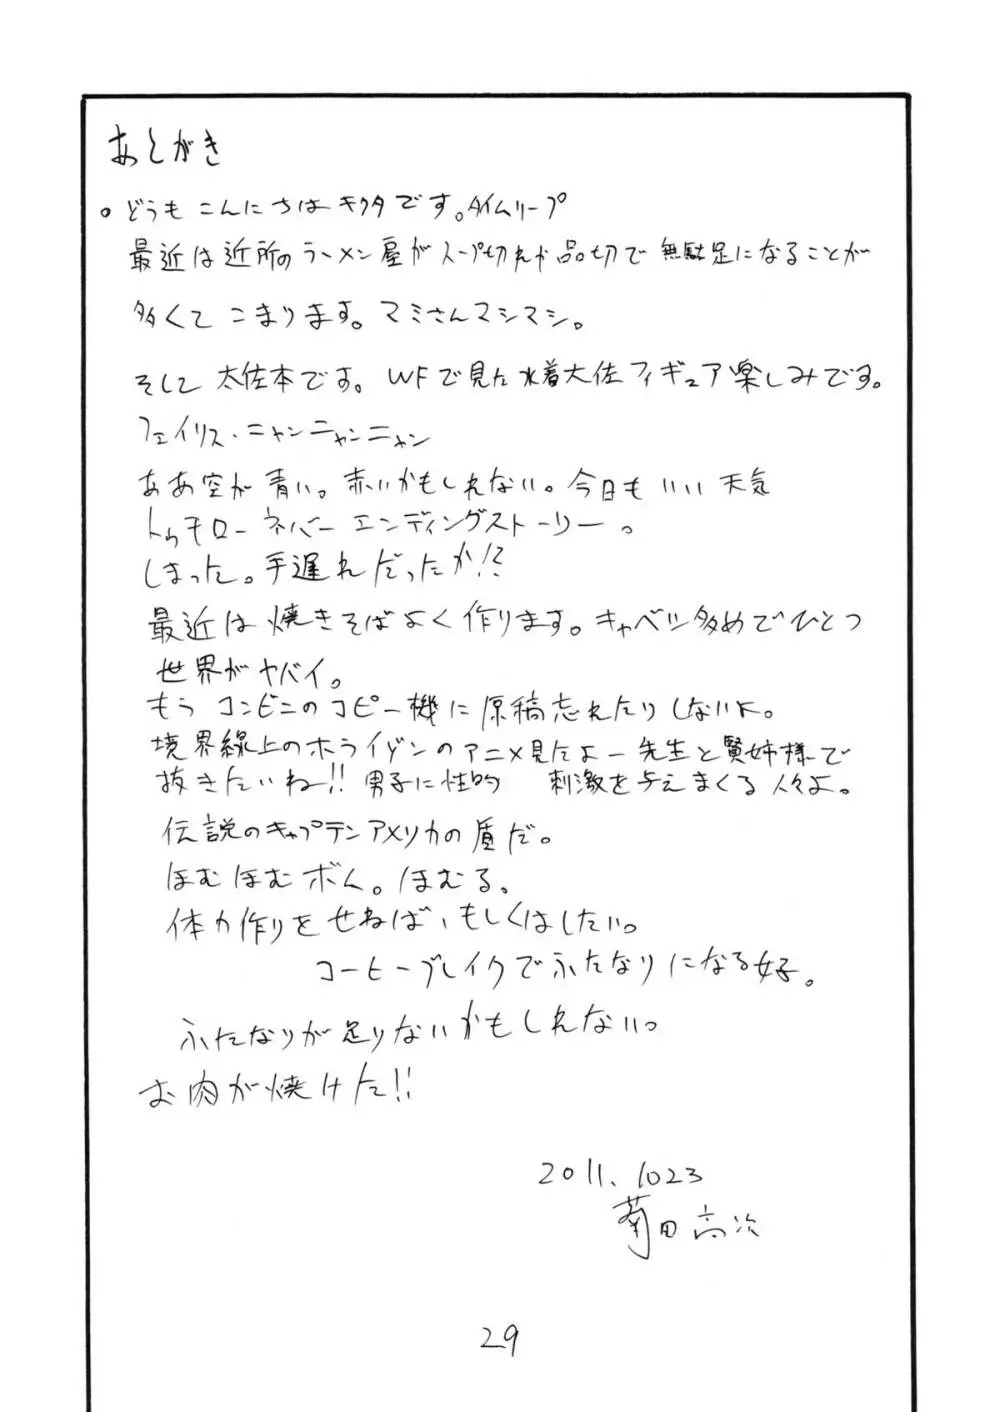 あとがき
。どうも こんにちは キクタです。タイムリープ
最近は近所のラーメン屋がスープ切れか品切で無駄足になることが
多くて こまります。マミさんマシマシ。
そして 大佐本です。WFで見た水着大佐フィギュア楽しみです。
フェイリス・ニャンニャンニャン
ああ空が青い。赤いかもしれない。今日もいい天気
トゥモローネバーエンディングストーリー。
しまった。手遅れだったか!?
最近は焼きそばよく作ります。キャベツ多めでひとつ
世界がヤバイ。
もう コンビニのコピー機に原稿忘れたりしないよ。
境界線上のホライゾンのアニメ見たよー先生と賢姉様で
抜きたいね!! 男子に性的 刺激を与えまくる人々よ。
伝説のキャプテンアメリカの盾だ。
ほむほむボム。ほむる。
体力作りをせねば、もしくはしたい。
コーヒーブレイクでふたなりになる女子。
ふたなりが足りないかもしれない。
お肉が焼けた!!
2011.1023
菊田高次
29